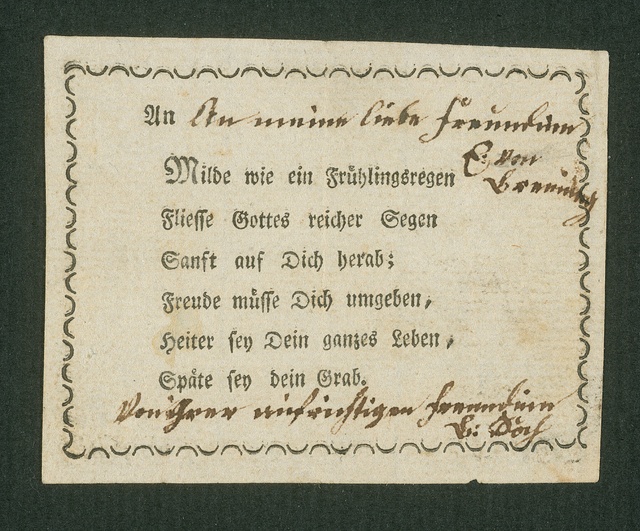 An An meine liebe Freundinn
E: von
Breuning
Milde wie ein Frühlingsregen
Fliesse Gottes reicher Segen
Sanft auf Dich herab;
Freude müsse Dich umgeben,
Heiter sey Dein ganzes Leben,
Späte sey dein Grab.
Von Ihrer aufrichtigen Freundinn
B: Koch